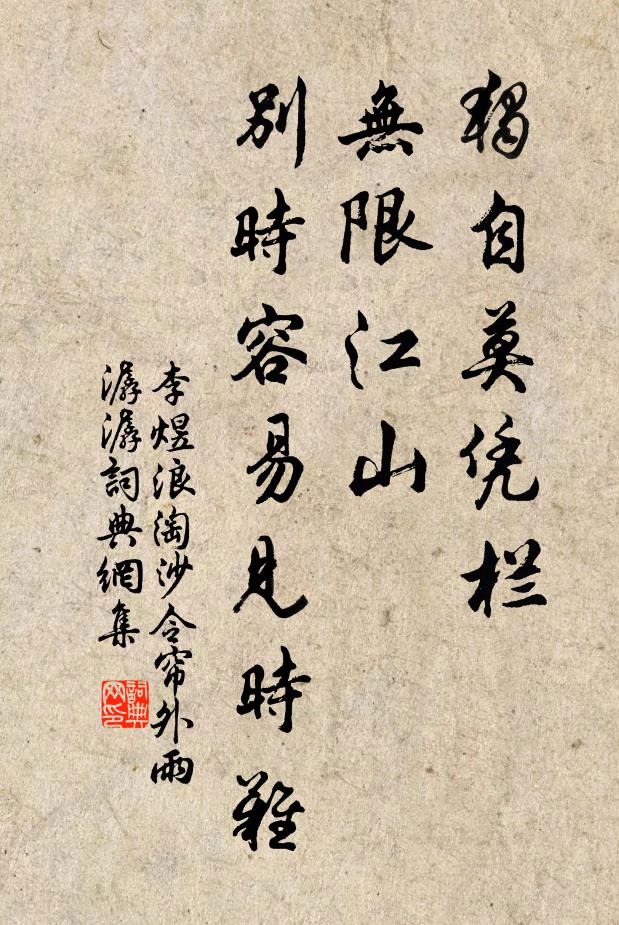 獨自莫凭栏
無限江山
別時容易見時難
李煜浪淘沙令帘外雨
潺潺詞典網集
詞典网印